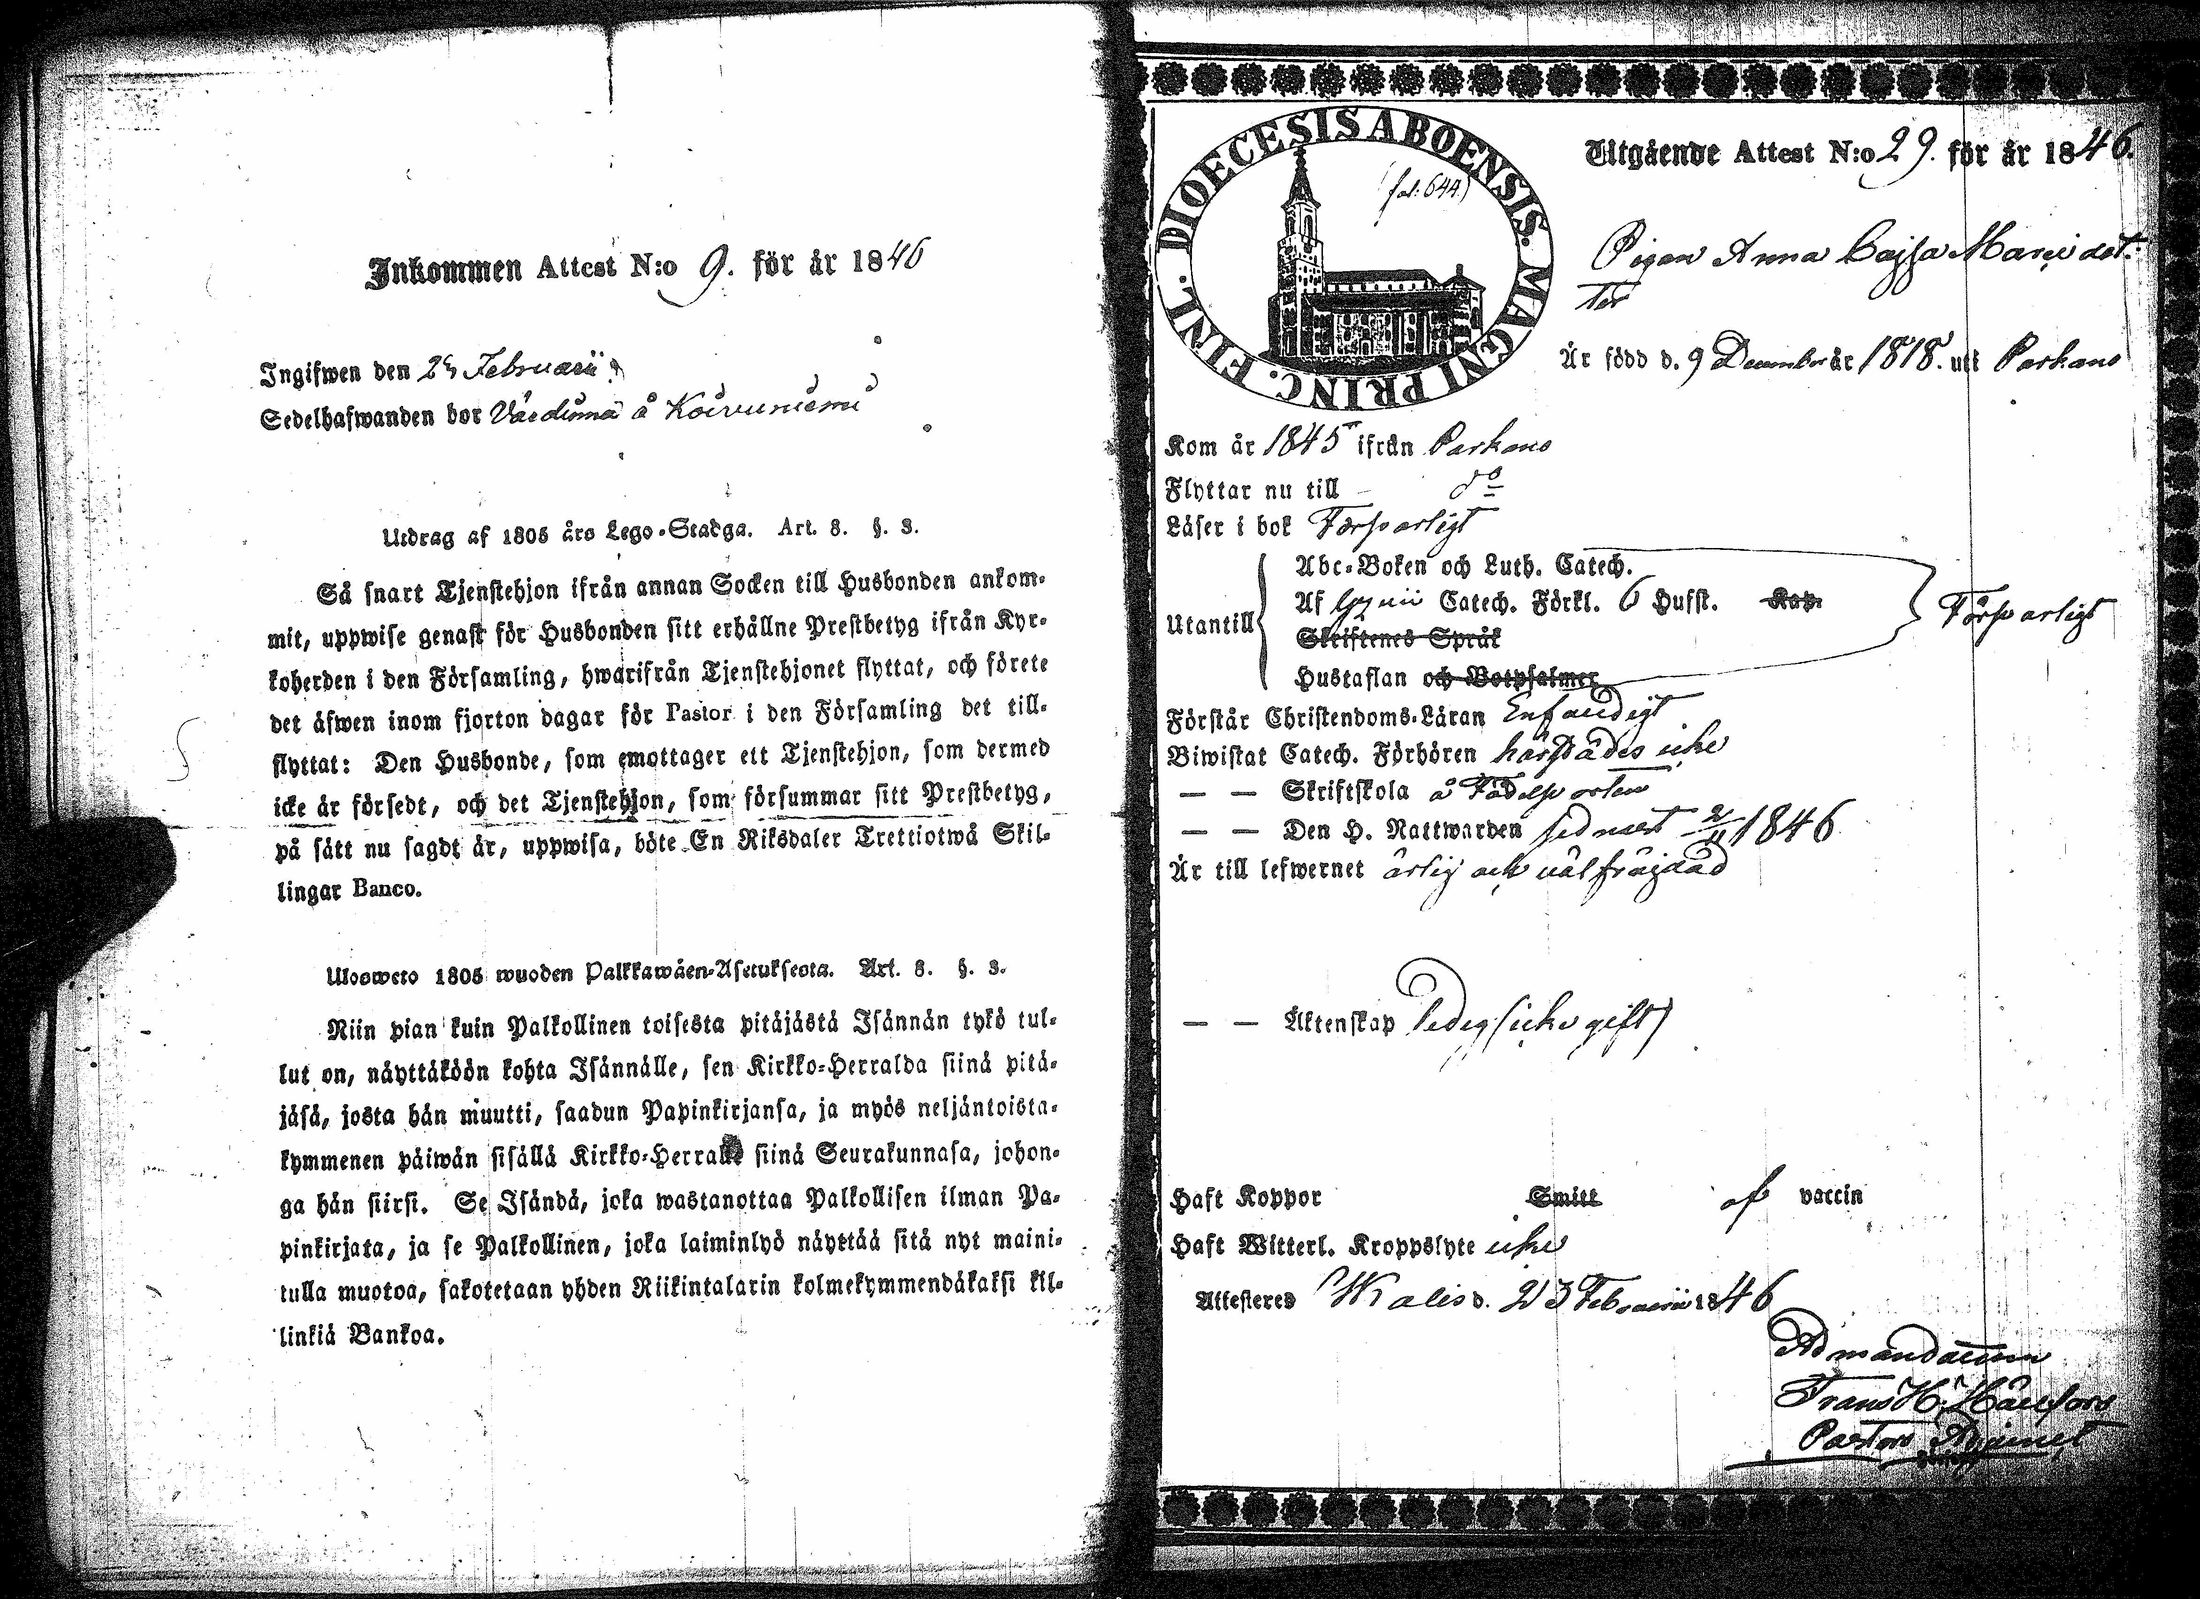 Inkommen Attest N:o 9. för år 1846
Ingifwen den Februarii
Sedelhafwanden bor å Koivuniemi
Utdrag af 1805 års Lego-Stadga. Art. 8. §. 3.
Så snart Tjenstehjon ifrån annan Socken till Husbonden ankom-
mit, uppwise genast för Husbonden sitt erhållne Prestbetyg ifrån Kyr-
koherden i den Församling, hwarifrån Tjenstehjonet flyttat, och förete
det äfwen inom fjorton dagar för Pastor i den Församling det till-
flyttat: Den Husbonde, som emottager ett Tjenstehjon, som dermed
icke är försedt, och det Tjenstehjon, som försummar sitt Prestbetyg,
på sätt nu sagdt är, uppwisa, böte En Riksdaler Trettiotwå Skil-
lingar Banco.
Ulosweto 1805 wuoden Palkkawäen-Asetuksesta. Art. 8. §. 3.
Niin pian kuin Palkollinen toisesta pitäjästä Isännän tykö tul-
lut on, näyttäköön kohta Isännälle, sen Kirkko-Herralda siinä pitä-
jäsä, josta hän muutti, saadun Papinkirjansa, ja myös neljäntoista-
kymmenen päiwän sisällä Kirkko-Herralle siinä Seurakunnasa, johon-
ga hän siirsi. Se Isändä, joka wastanottaa Palkollisen ilman Pa-
pinkirjata, ja se Palkollinen, joka laiminlyö näyttää sitä nyt maini-
tulla muotoa, sakotetaan yhden Riikintalarin kolmekymmendäkaksi kil-
linkiä Bankoa.
DIOECESIS ABOENSIS. MAGNI PRINC. FINL.
(fol: 644.)
Utgående Attest N:o 29. för år 1846.
Pigan Anna Cajsa Mariædot-
ter
Är född d. 9 December år 1818. uti Parkano
Kom år 1845 ifrån Parkano
Flyttar nu till do
Läser i bok Försvarligt
Utantill
Abc-Boken och Luth. Catech.
Af Catech. Förkl. 6 Hufst. Kap.
Skriftenes Språk
Hustaflan och Botpsalmer
Försvarligt
Förstår Christendoms-Läran Enfaldigt
Biwistat Catech. Förhören härstädes icke
— — Skriftskola å Födelseorten
— — Den H. Nattwarden sednast 1846
Är till lefwernet ärlig och välfräjdad
— — Äktenskap Ledig (icke gift)
Haft Koppor Smitt af vaccin
Haft Witterl. Kroppslyte icke
Attesteres d. 23 Februarii 1846
Ad mandatum
Frans H.
Pastors Adjunct